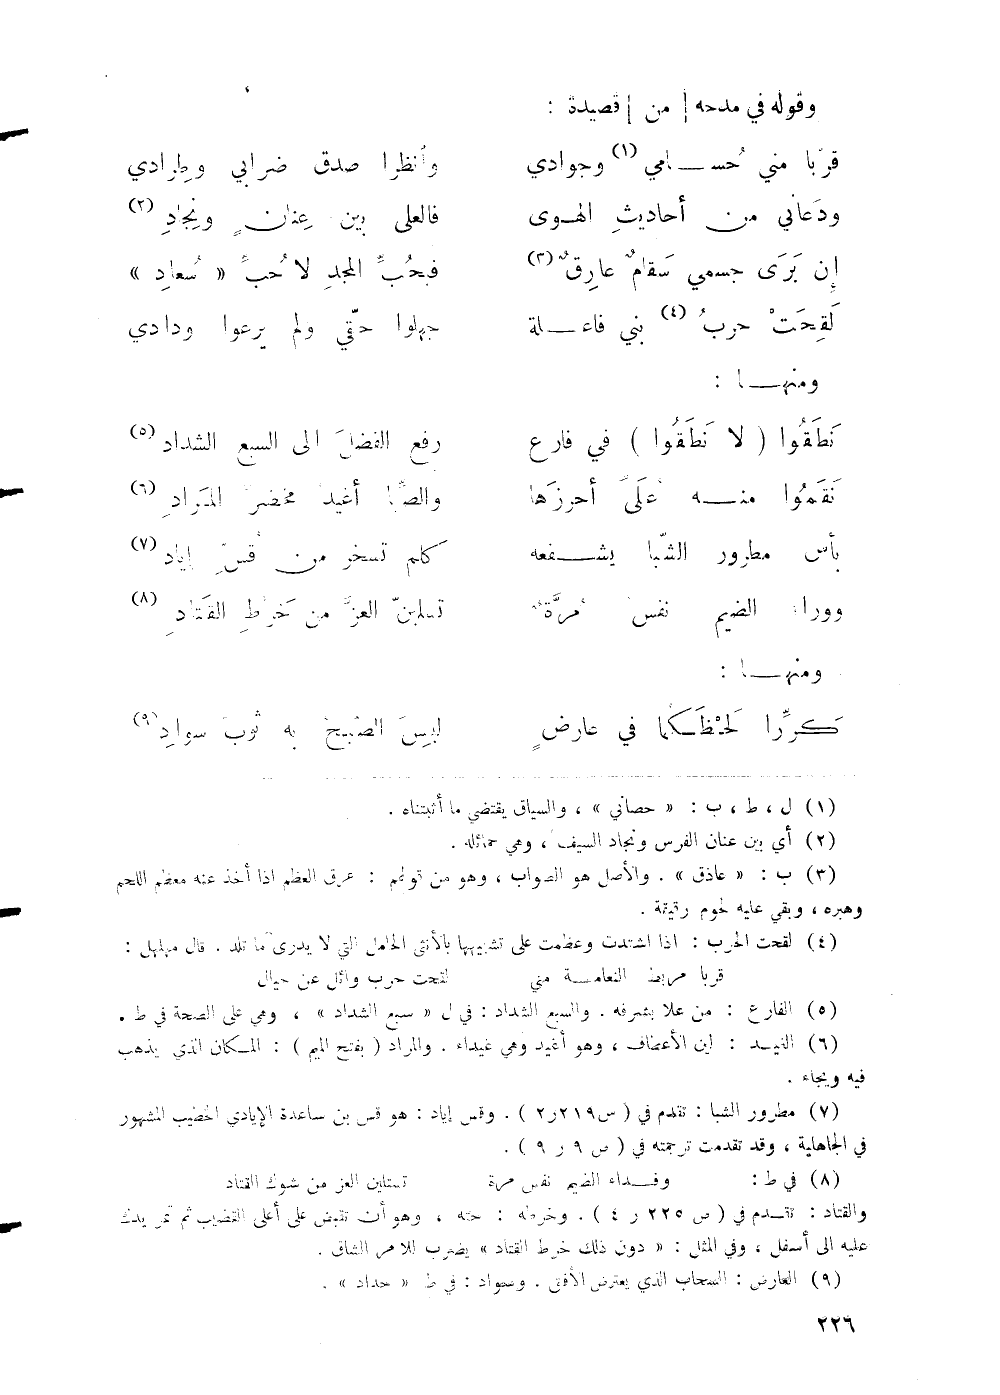 وقوله في مدحه | من | قصيدة :
قرّبا مني حُســامي (١) وجوادي وأنظرا صدق ضرابي وطرادي
ودَعاني من أحاديثِ الهوى فالعلى بين عِنانٍ ونِجادِ (٢)
إن بَرَى جسمي سَقامٌ عارِقٌ (٣) فبحُبِّ المجدِ لا حُبِّ « سُعادِ »
لَقِحَتْ حربُ (٤) بني فاعــلة جهلوا حقّي ولم يرعوا ودادي
ومنهــا :
نَطَقُوا ( لا نَطَقُوا ) في فارع رفع الفضلَ الى السبع الشداد (٥)
نَقَمُوا منــه عُلىً أحرزَها والصِّبا أغيدُ مخضرُّ المَرادِ (٦)
بأس مطرور الشَّبا يشــفعه كلم تسخر من قُسِّ إيادِ (٧)
ووراء الضيم نفسٌ مُرَّةٌ تستلينُ العزَّ من خَرْطِ القَتادِ (٨)
ومنهــا :
كرِّرا لَحْظَكما في عارضٍ لبِسَ الصُّبحُ به ثوبَ سوادِ (٩)
(١) ل ، ط ، ب : « حصاني » ، والسياق يقتضي ما أثبتناه .
(٢) أي بين عنان الفرس ونجاد السيف ، وهي حمائله .
(٣) ب : « عاذق » . والأصل هو الصواب ، وهو من قولهم : عرق العظم اذا أخذ عنه معظم اللحم
وهبره ، وبقي عليه لحوم رقيقة .
(٤) لقحت الحرب : اذا اشتدت وعظمت على تشبيهها بالأنثى الحامل التي لا يدرى ما تلد . قال مهلهل :
قربا مربط النعامــة مني لقحت حرب وائل عن حيال
(٥) الفارع : من علا بشرفه . والسبع الشداد : في ل « سبع الشداد » ، وهي على الصحة في ط .
(٦) الغيــد : لين الأعطاف ، وهو أغيد وهي غيداء . والمراد ( بفتح الميم ) : المــكان الذي يذهب
فيه ويجاء .
(٧) مطرور الشبا : تقدم في ( س٢١٩ر٢ ) . وقس إياد : هو قس بن ساعدة الإيادي الخطيب المشهور
في الجاهلية ، وقد تقدمت ترجمته في ( ص ٩ ر ٩ ) .
(٨) في ط : وفــداء الضيم نفس مرة تستلين العز من شوك القتاد
والقتاد : تقــدم في ( ص ٢٢٥ ر ٤ ) . وخرطه : حته ، وهو أن تقبض على أعلى القضيب ثم تمر يدك
عليه الى أسفل ، وفي المثل : « دون ذلك خرط القتاد » يضرب للأمر الشاق .
(٩) العارض : السحاب الذي يعترض الأفق . وسواد : في ط « حداد » .
٢٢٦